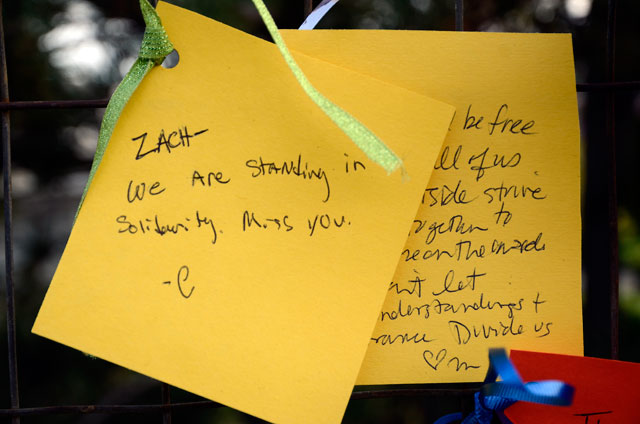 ZACH-
We Are Standing in
Solidarity. Miss you.
-C
be free
ll of us
tside strive
ogether to
on the inside
n't let
nderstandings +
rance Divide us
♡m